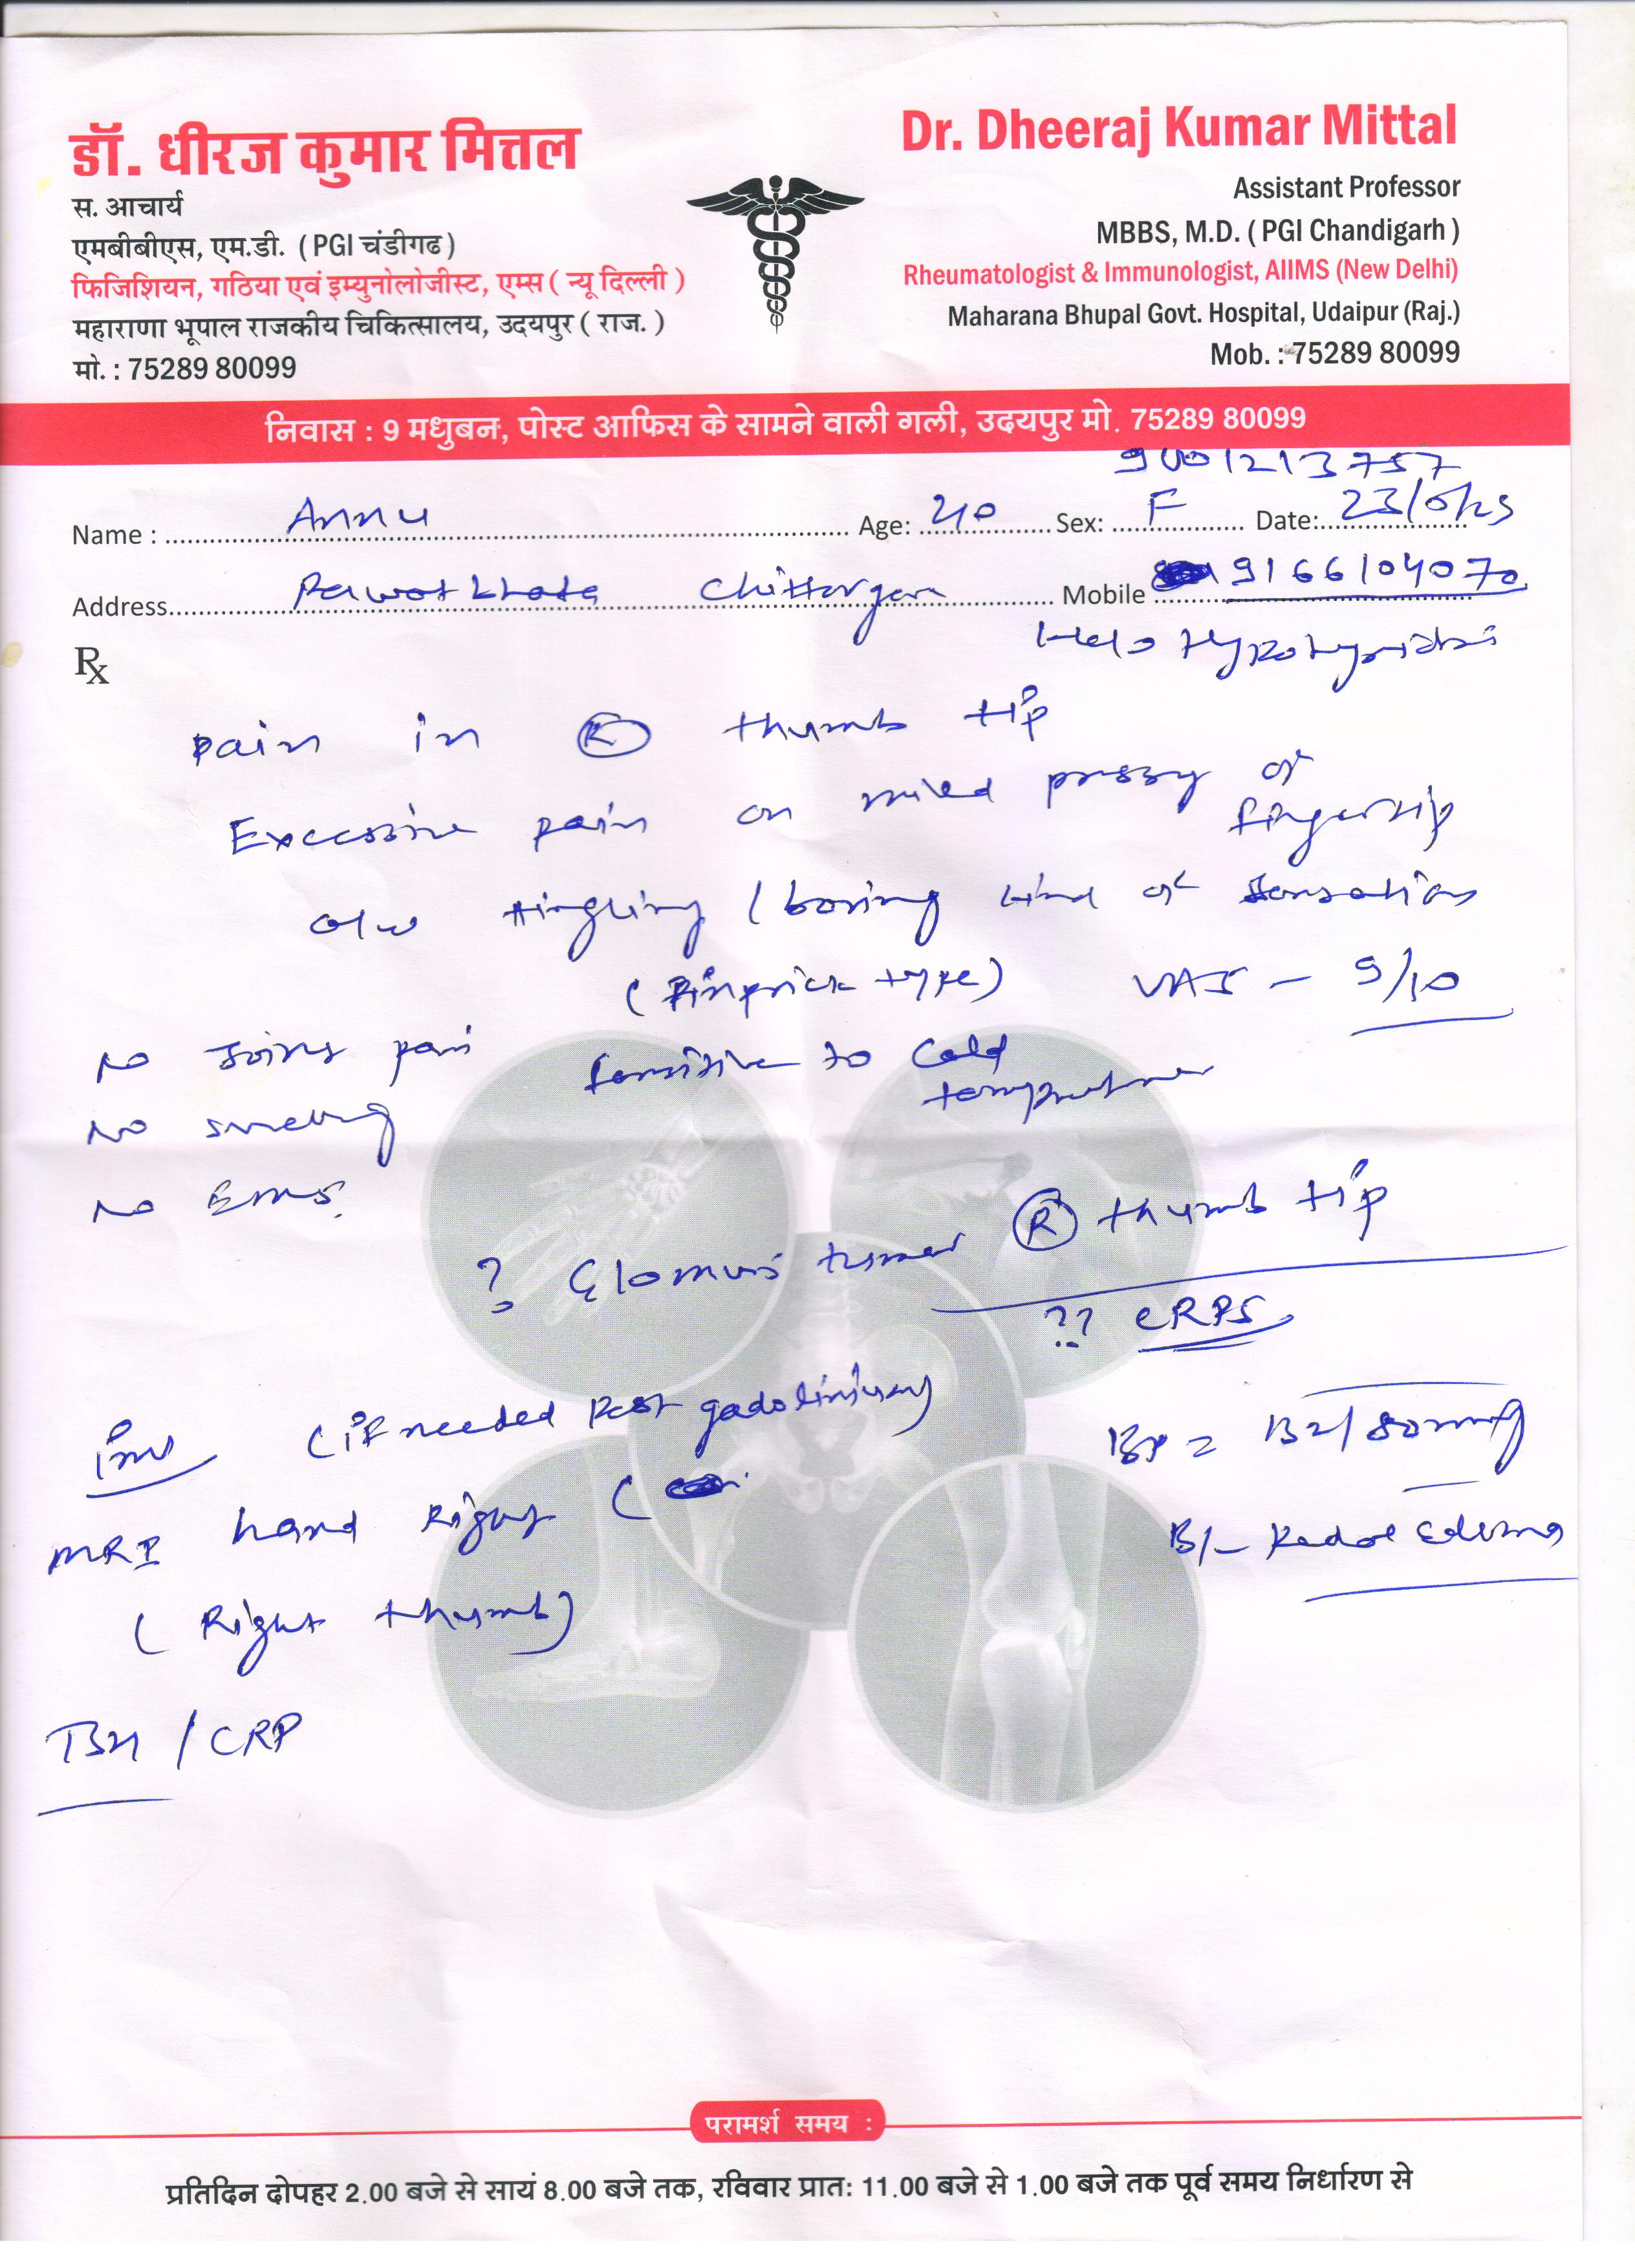 डॉ. धीरज कुमार मित्तल
स. आचार्य
एमबीबीएस, एम.डी. ( PGI चंडीगढ )
फिजिशियन, गठिया एवं इम्युनोलोजीस्ट, एम्स ( न्यू दिल्ली )
महाराणा भूपाल राजकीय चिकित्सालय, उदयपुर ( राज. )
मो. : 75289 80099
Dr. Dheeraj Kumar Mittal
Assistant Professor
MBBS, M.D. ( PGI Chandigarh )
Rheumatologist & Immunologist, AIIMS (New Delhi)
Maharana Bhupal Govt. Hospital, Udaipur (Raj.)
Mob. : 75289 80099
निवास : 9 मधुबन, पोस्ट आफिस के सामने वाली गली, उदयपुर मो. 75289 80099
Name : Annu Age: 40 Sex: F Date:
Address Rawatbhata Mobile 9166104070
Rx
pain in R thumb tip
Excessive pain on mild of
fingertip
tingling / boring kind of sensation
(Pinprick type) VAS - 9/10
No pain sensitive to cold
No
No EMS.
? Glomus R thumb tip
?? CRPS
inv (if needed Post gadolinium)
MRI hand Right (
(Right thumb)
/ CRP
B/L Pedal edema
परामर्श समय :
प्रतिदिन दोपहर 2.00 बजे से सायं 8.00 बजे तक, रविवार प्रात: 11.00 बजे से 1.00 बजे तक पूर्व समय निर्धारण से